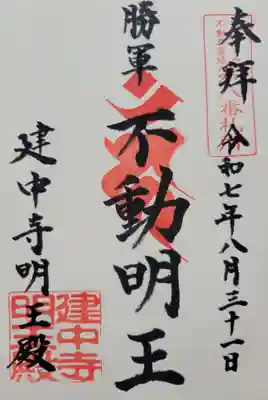 奉拝
令和七年八月三十一日
勝軍
不動明王
建中寺明王殿
建中寺
明王殿